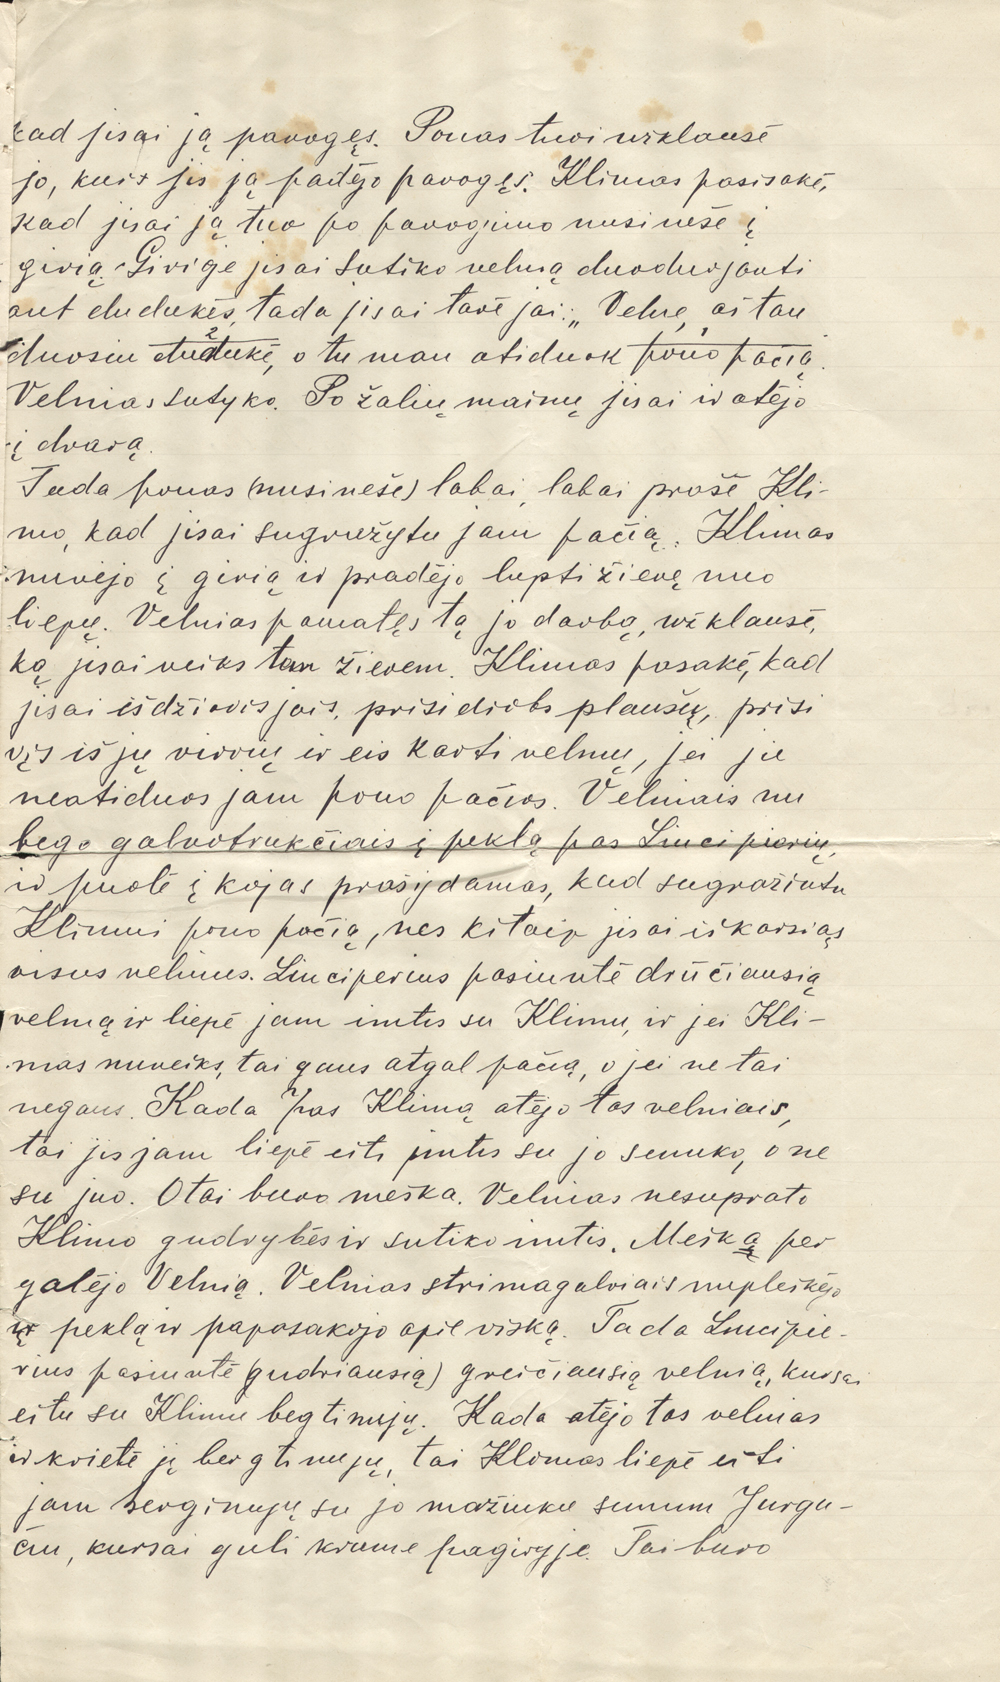 kad jisai ją pavogęs. Ponas tuoi užklausė
jo, kuir jis ją padėjo pavogęs. Klimas pasisakė,
kad jisai ją tuo po pavogimo nusinešė į
girią. Girigė jisai sutiko velnią duoduojanti
ant dudukės, tada jisai tarė jai: „Velne, aš tau
duosiu dudukę, o tu man atiduok pono pačią.
Velnias sutyko. Po žalių mainų jisai ir atėjo
į dvarą.
Tada ponas (nusinešė) labai, labai prašė Kli-
mo, kad jisai sugružytu jam pačią. Klimas
nuvėjo į girią ir pradėjo lupti žievę nuo
liepų. Velnias pamatęs tą jo darbą, užklausė,
ką jisai veiks tam žievem. Klimas pasakė, kad
jisai išdžiovis jais, prisidirbs plaušų, prisi
vys iš jų virvių ir eis karti velnių, jei jie
neatiduos jam pono pačios. Velniais nu
bėgo galvotrukčiais į peklą pas Linciperių,
ir puolė į kojas prašydamas, kad sugražintu
Klimui pono pačią, nes kitaip jisai iškarsiąs
visus velnius. Linciperius pasiuntė drūčiausią
velnią ir liepė jam imtis su Klimu, ir jei Kli-
mas nuveiks, tai gaus atgal pačią, o jei ne tai
negaus. Kada pas Klimą atėjo tas velniais,
tai jis jam liepė eiti imtis su jo senuko, o ne
su juo. O tai buvo meška. Velnias nesuprato
Klimo gudrybės ir sutiko imtis. Mešką per
galėjo Velnią. Velnias strimagalviais nupleškėjo
į peklą ir papasakojo apie viską. Tada Lincipie-
rius pasiuntė (gudriausią) greičiausią velnią, kursai
eitu su Klimu begtinujų. Kada atėjo tas velnias
ir kvietė jį bergtinujų, tai Klimas liepė eiti
jam berginujų su jo mažiuku sunum Jurgu-
čiu, kursai guli krume pagiryje. Tai buvo